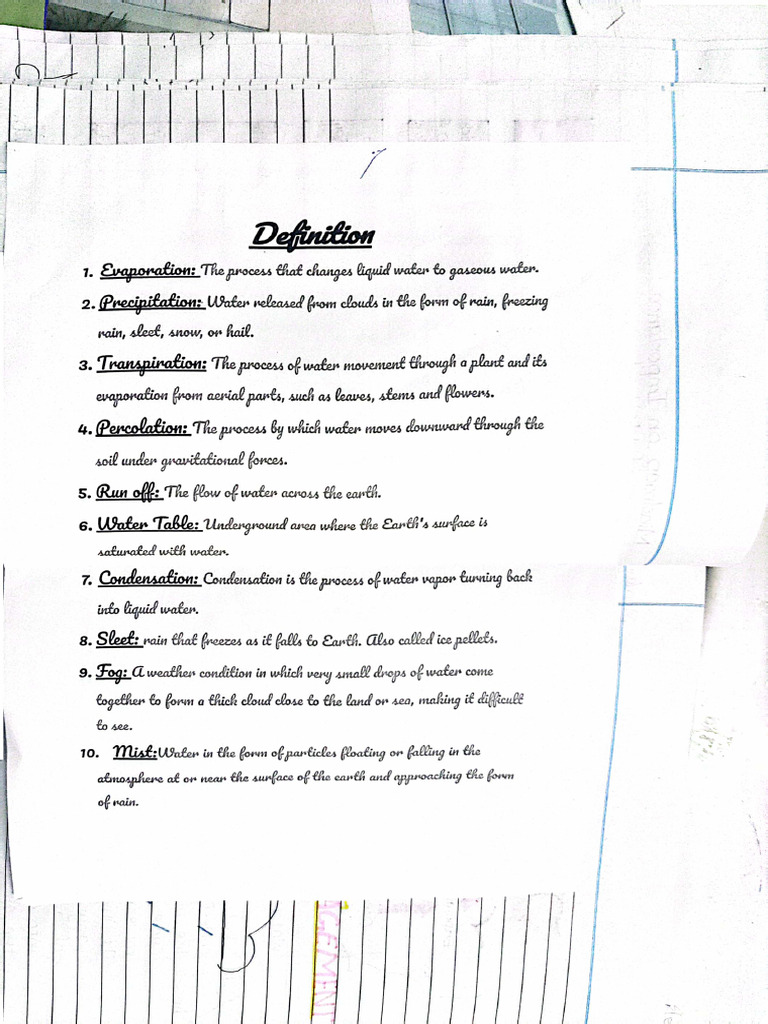 Definition
1. Evaporation: The process that changes liquid water to gaseous water.
2. Precipitation: Water released from clouds in the form of rain, freezing
rain, sleet, snow, or hail.
3. Transpiration: The process of water movement through a plant and its
evaporation from aerial parts, such as leaves, stems and flowers.
4. Percolation: The process by which water moves downward through the
soil under gravitational forces.
5. Run off: The flow of water across the earth.
6. Water Table: Underground area where the Earth's surface is
saturated with water.
7. Condensation: Condensation is the process of water vapor turning back
into liquid water.
8. Sleet: rain that freezes as it falls to Earth. Also called ice pellets.
9. Fog: A weather condition in which very small drops of water come
together to form a thick cloud close to the land or sea, making it difficult
to see.
10. Mist:Water in the form of particles floating or falling in the
atmosphere at or near the surface of the earth and approaching the form
of rain.
AGEMENT